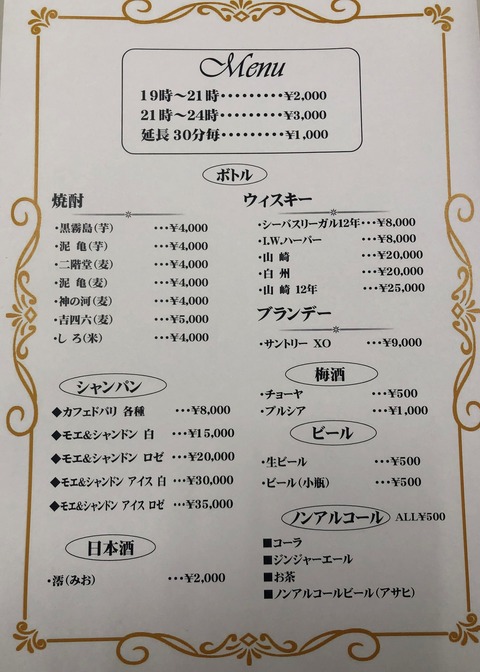 Menu
19時～21時･････････¥2,000
21時～24時･････････¥3,000
延長 30分毎･････････¥1,000
ボトル
焼酎
・黒霧島(芋) ･･･¥4,000
・泥 亀(芋) ･･･¥4,000
・二階堂(麦) ･･･¥4,000
・泥 亀(麦) ･･･¥4,000
・神の河(麦) ･･･¥4,000
・吉四六(麦) ･･･¥5,000
・しろ(米) ･･･¥4,000
ウィスキー
・シーバスリーガル12年･･･¥8,000
・I.W.ハーパー ･･･¥8,000
・山 崎 ･･･¥20,000
・白 州 ･･･¥20,000
・山 崎 12年 ･･･¥25,000
ブランデー
・サントリー XO ･･･¥9,000
シャンパン
◆カフェドパリ 各種 ･･･¥8,000
◆モエ&シャンドン 白 ･･･¥15,000
◆モエ&シャンドン ロゼ ･･･¥20,000
◆モエ&シャンドン アイス 白 ･･･¥30,000
◆モエ&シャンドン アイス ロゼ ･･･¥35,000
日本酒
・澪(みお) ･･･¥2,000
梅酒
・チョーヤ ･･･¥500
・プルシア ･･･¥1,000
ビール
・生ビール ･･･¥500
・ビール(小瓶) ･･･¥500
ノンアルコール ALL¥500
■コーラ
■ジンジャーエール
■お茶
■ノンアルコールビール(アサヒ)